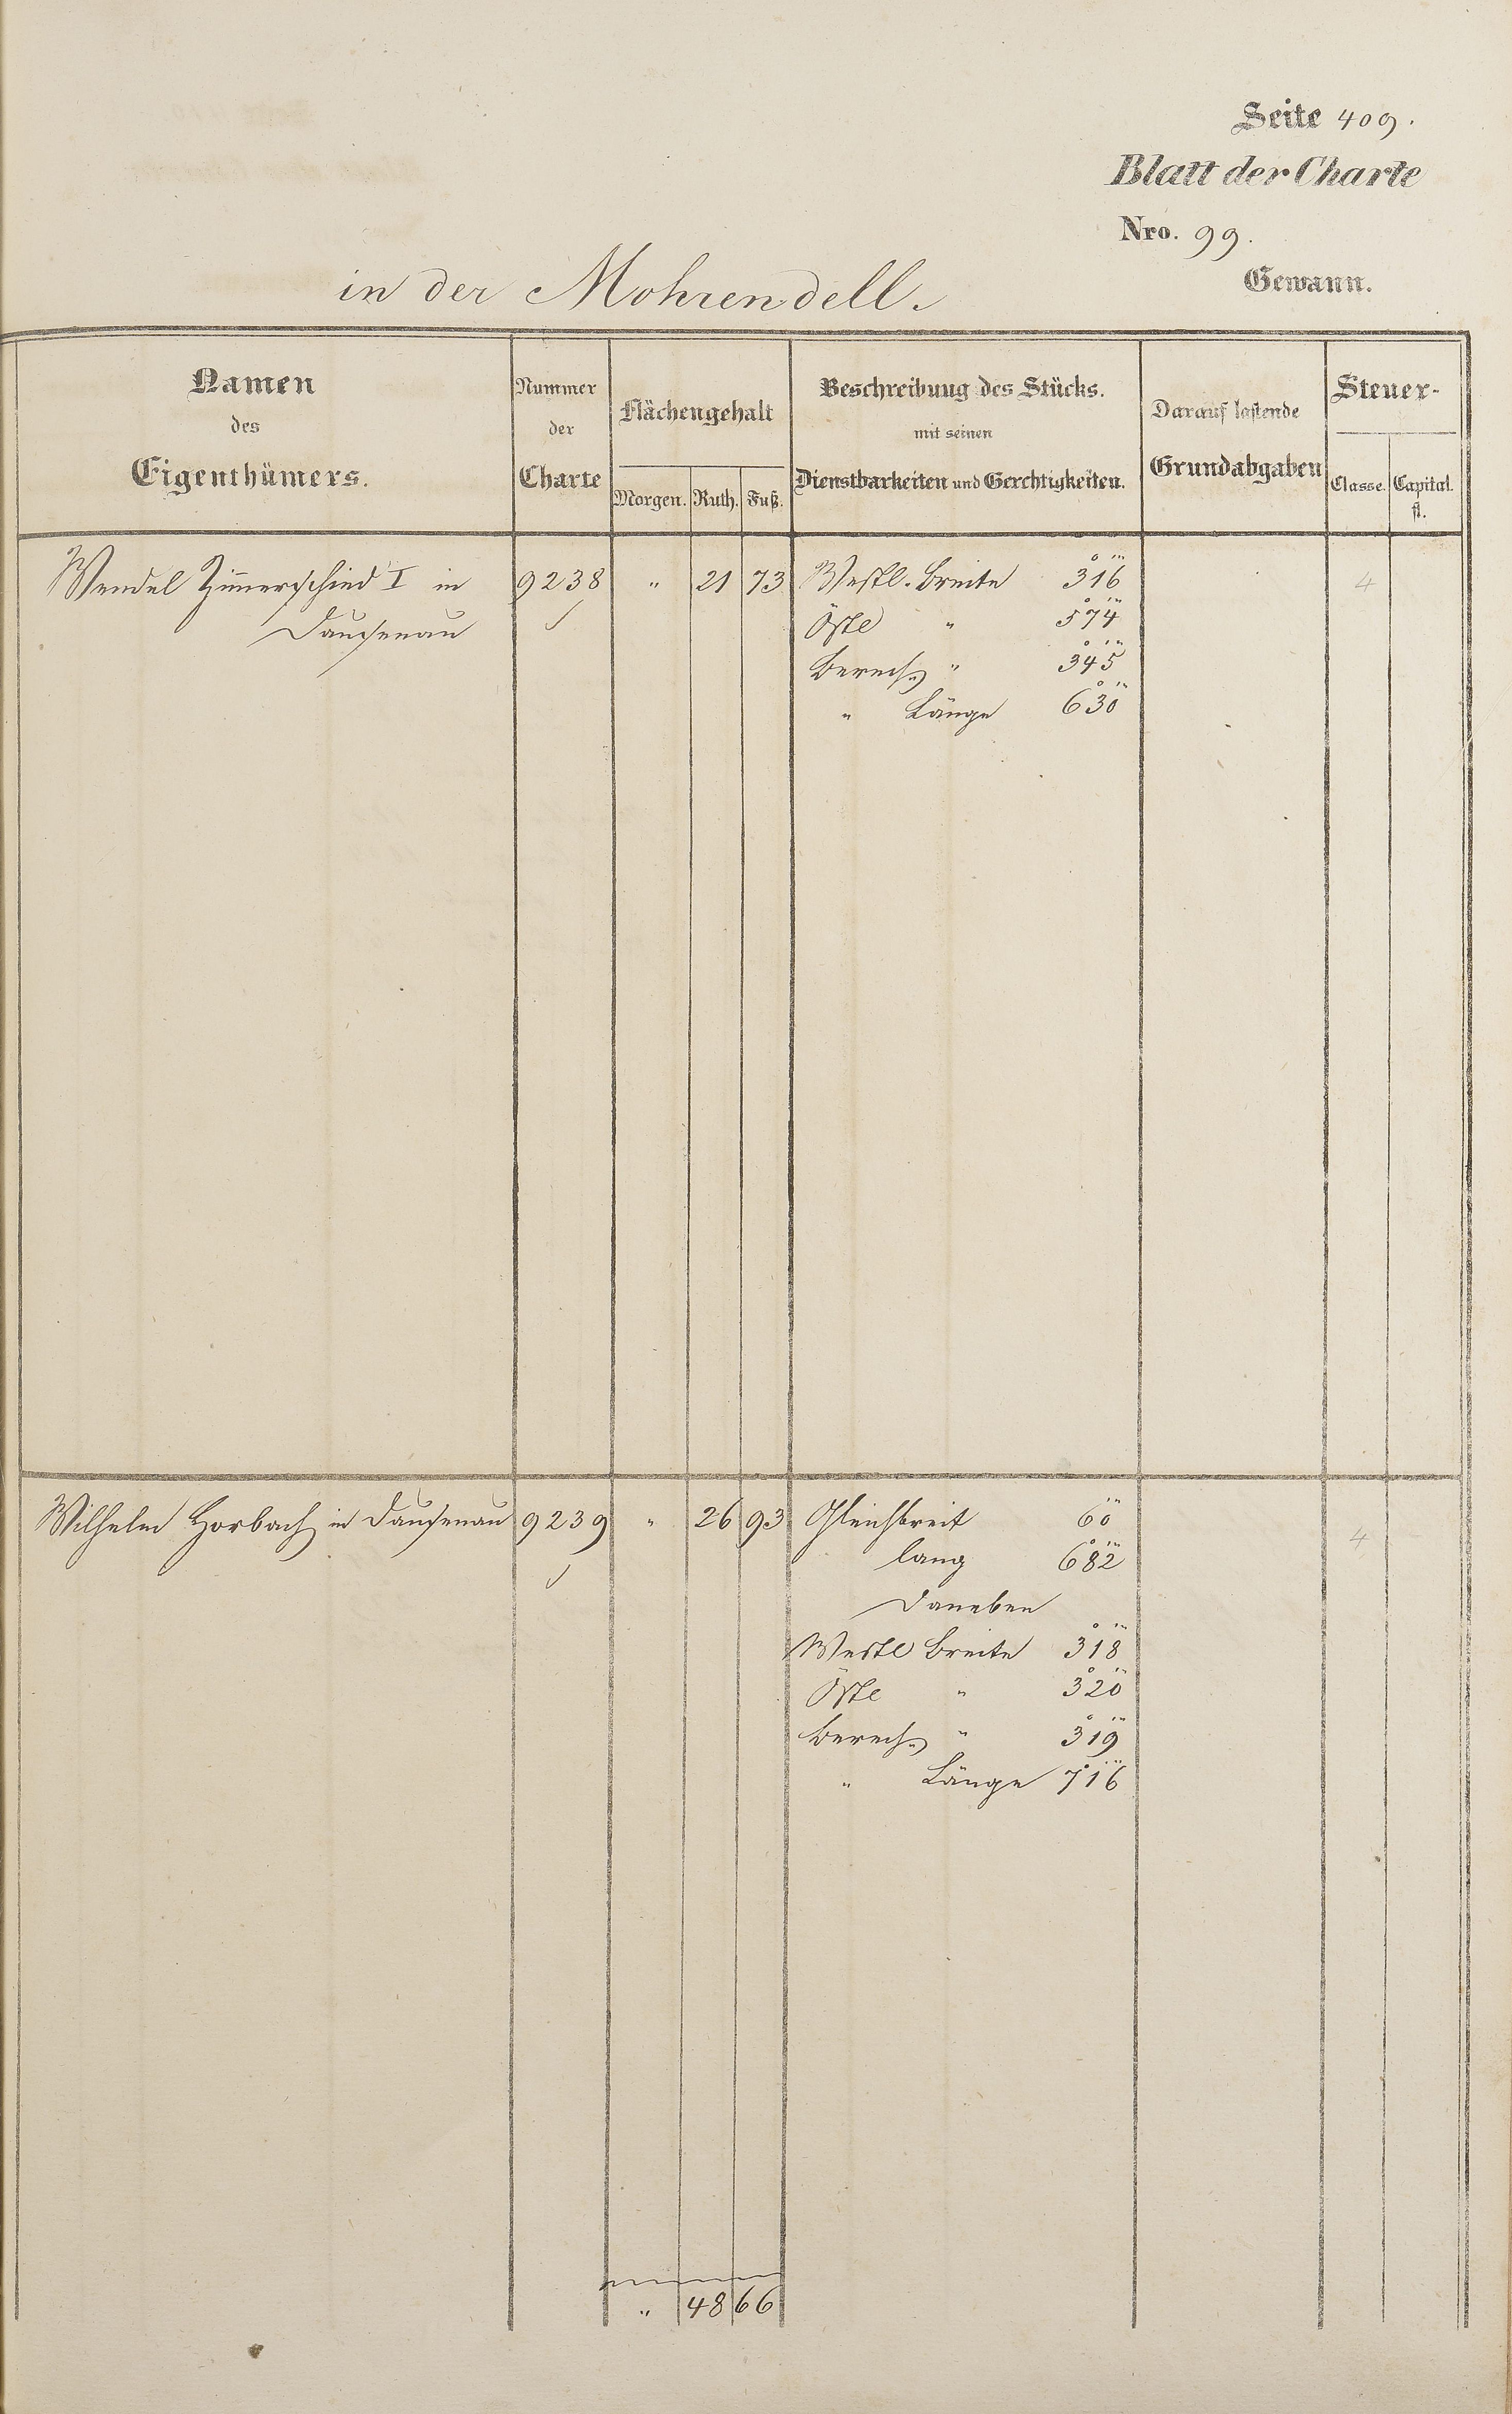 Seite 409.
Blatt der Charte
Nro. 99.
in der Mohrendell.
Gewann.
Namen
des
Eigenthümers.
Nummer
der
Charte
Flächengehalt
Morgen. Ruth. Fuß.
Beschreibung des Stücks.
mit seinen
Dienstbarkeiten und Gerechtigkeiten.
Darauf lastende
Grundabgaben
Steuer-
Classe. Capital.
fl.
Wendel Zim̄erschied I in 9238 " 21 73 Westl. Breite 316 4
Dausenau Östl " 574
Berech. " 345
" Länge 630
Wilhelm Horbach in Dausenau 9239 " 26 93 Gleichbreit 60 4
lang 682
Daneben
Westl Breite 318
Östl " 320
Berech. " 319
" Länge 716
" 48 66